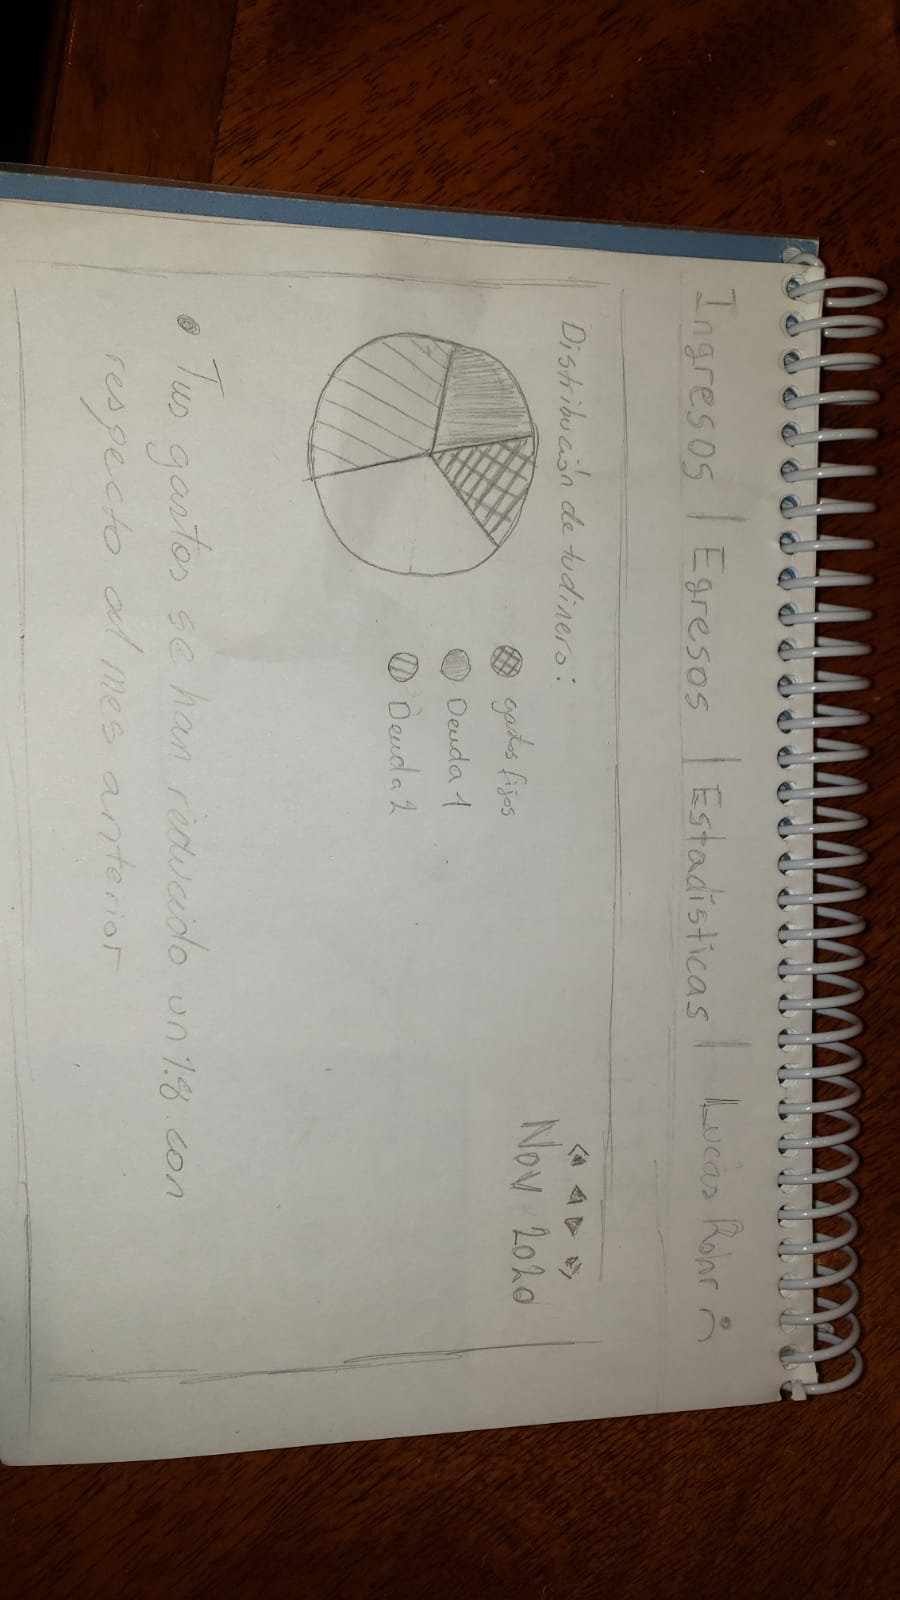 Ingresos | Egresos | Estadísticas | Lucas Rohr
Distribución de tu dinero:
Nov 2020
gastos fijos
Deuda 1
Deuda 2
Tus gastos se han reducido un 1.8 con
respecto al mes anterior